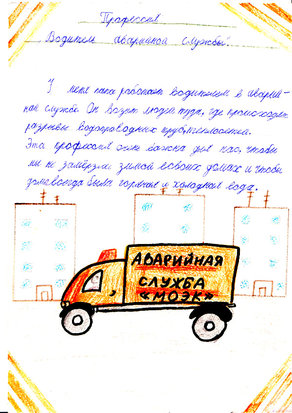 Профессия
Водитель аварийной службы.
У меня папа работает водителем в аварий-
ной службе. Он возит людей туда, где происходит
разрывы водопроводных труб
Эта профессия очень важна для нас, чтобы
мы не замёрзли зимой в своих домах и чтобы
у нас всегда была горячая и холодная вода.
АВАРИЙНАЯ
СЛУЖБА
«МОЭК»